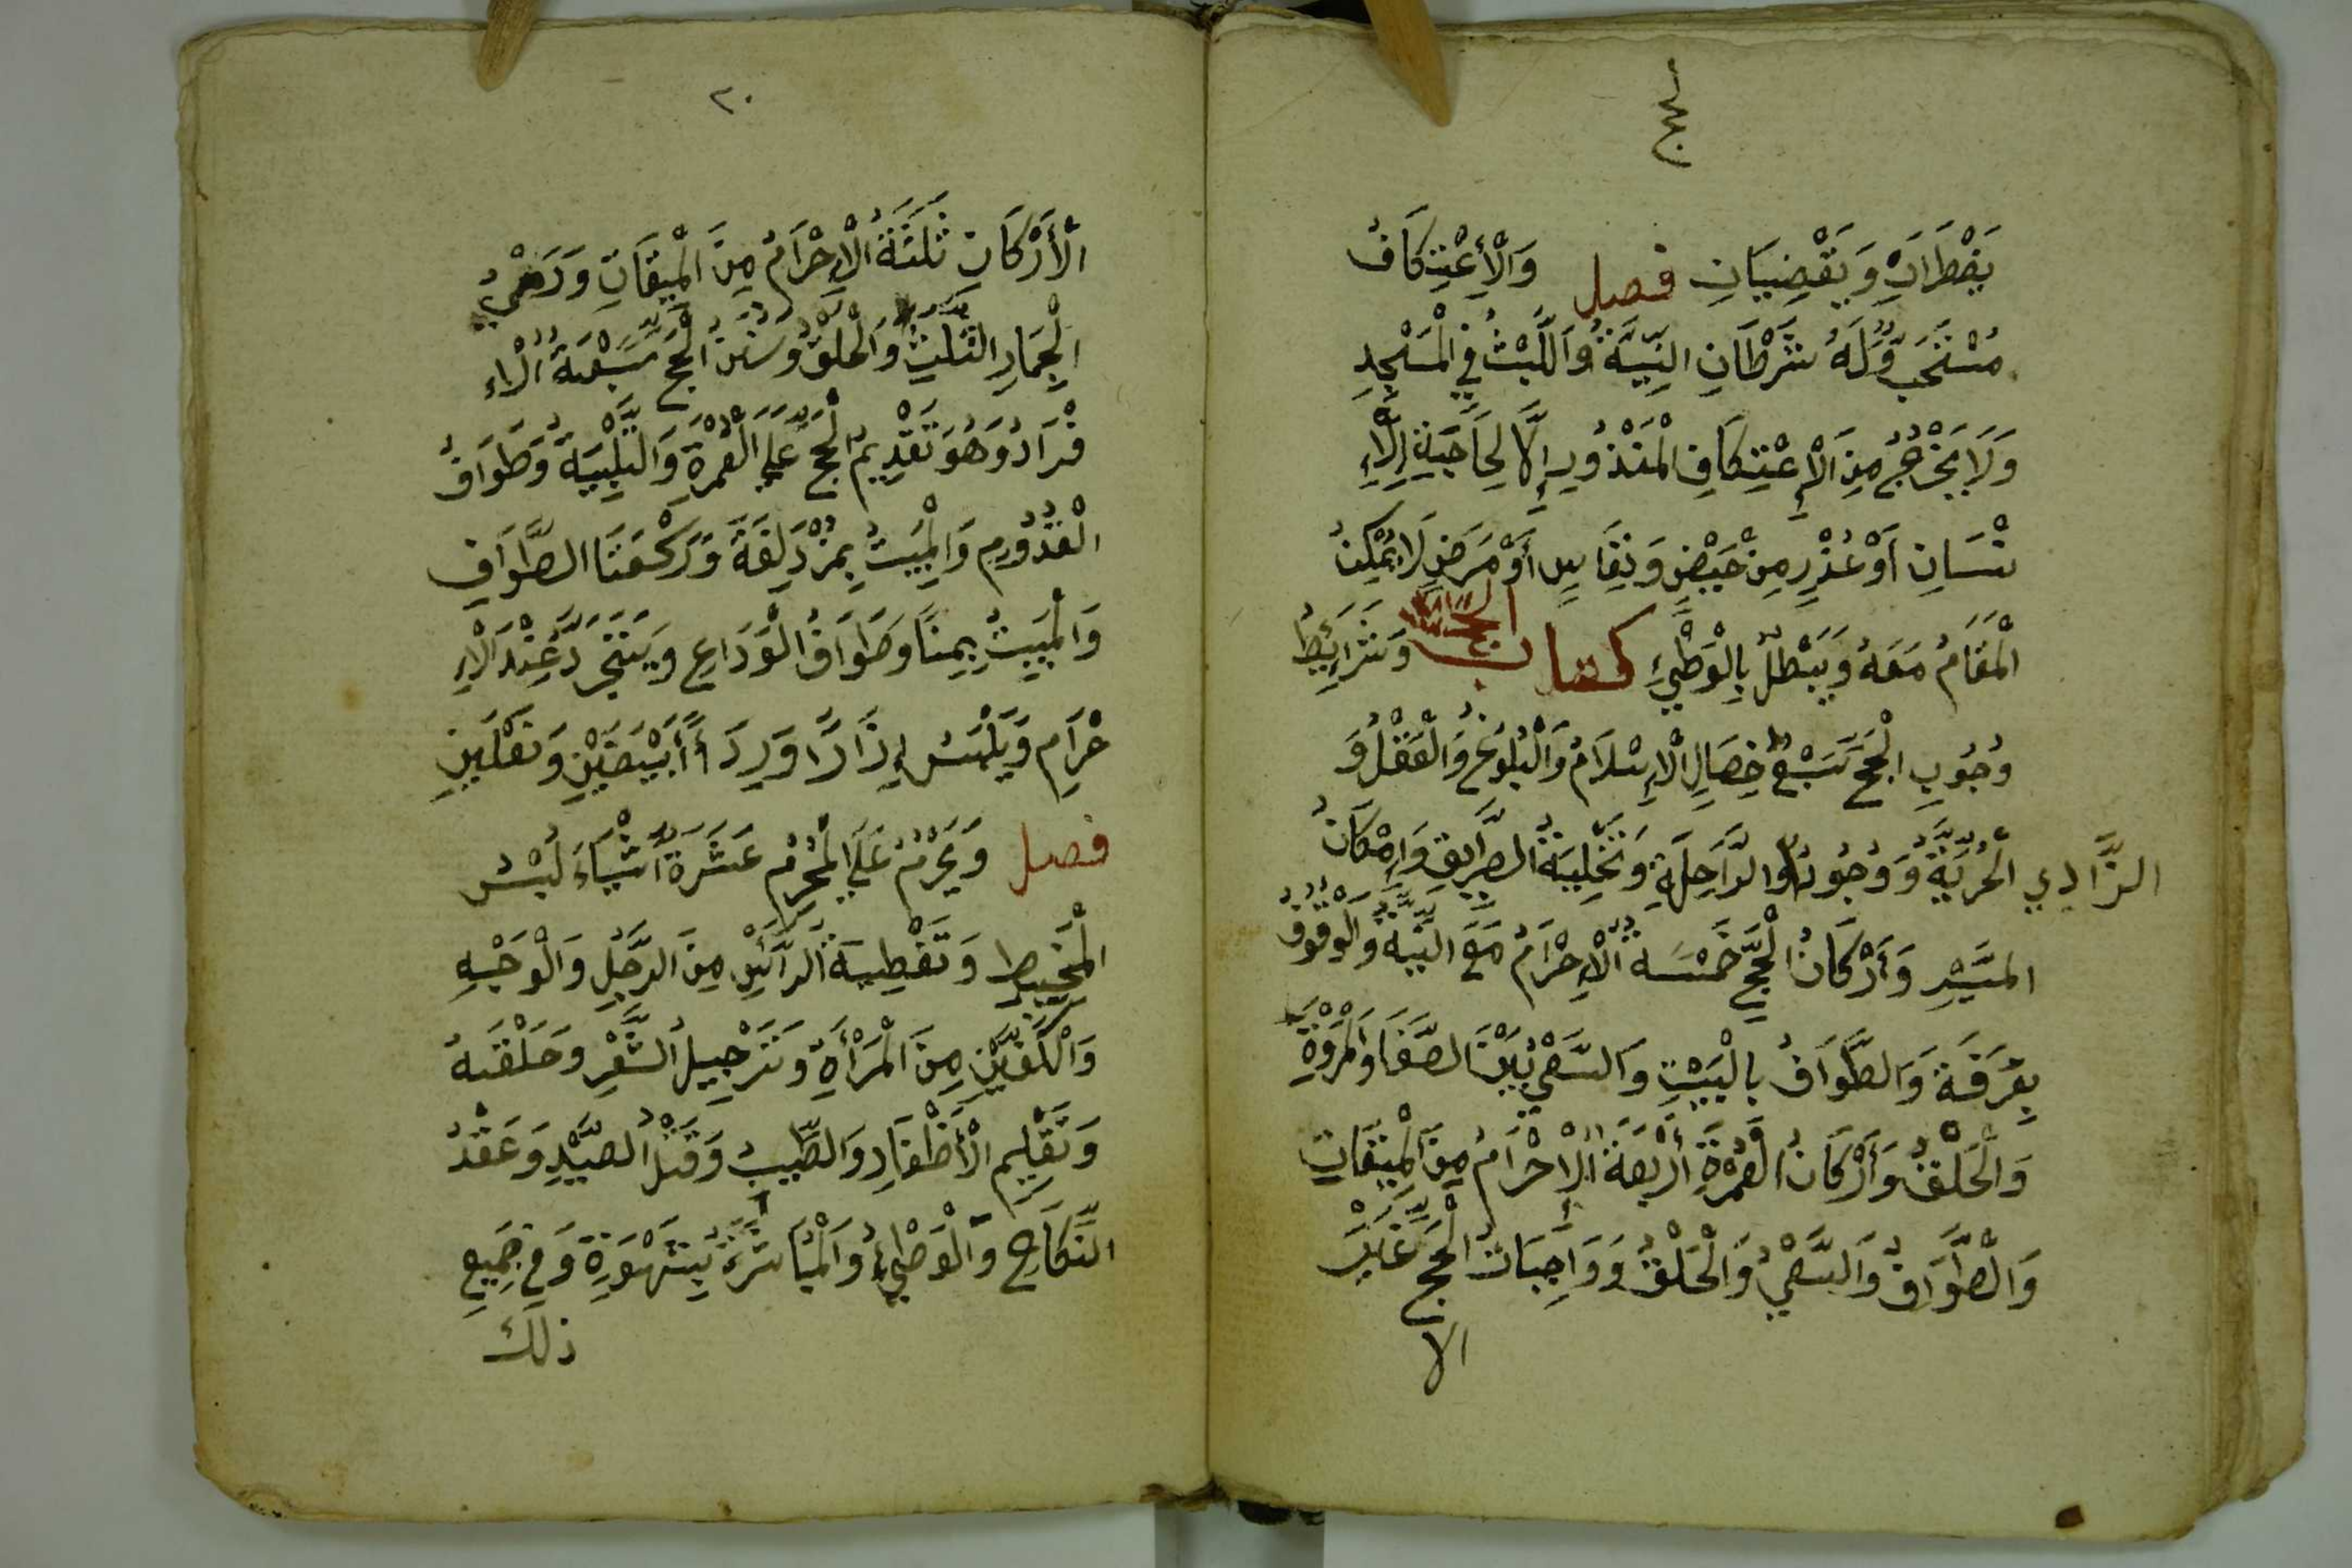 لحج
يَفْطَرَانِ وَيَقْضِيَانِ فصل وَالْأِعْتِكَافُ
مُسْتَحَبٌّ وَلَهُ شَرْطَانِ النِّيَّةُ وَاللَّبْثُ فِي الْمَسْجِدِ
وَلَا يَخْرُجُ مِنَ الْإِعْتِكَافِ الْمَنْذُورِ إِلَّا لِحَاجَةِ الْاِءِ
نْسَانِ اَوْ عُذْرٍ مِنْ حَيْضٍ وَنِفَاسٍ أَوْ مَرَضٍ لَا يُمْكِنُ
الْمَقَامُ مَعَهُ وَيَبْطَلُ بِالْوَطْئِ كتاب الحج وَشَرَائِطُ
وُجُوبِ الْحَجِّ سَبْعُ خِصَالٍ الْإِسْلَامُ وَالْبُلُوغُ وَالْعَقْلُ وَ
الْحُرِّيَّةُ وَوُجُودُ الزَّادِ وَالرَّاحِلَةِ وَتَخْلِيَةُ الطَّرِيقِ وَإِمْكَانُ
الْمَسِيْرِ وَأَرْكَانُ الْحَجِّ خَمْسَةٌ الْاِحْرَامُ مَعَ النِّيَّةِ وَالْوُقُوفُ
بِعَرَفَةَ وَالطَّوَافُ بِالْبَيْتِ وَالسَّعْيُ بَيْنَ الصَّفَا وَالْمَرْوَةِ
وَالْحَلْقُ وَأَرْكَانُ الْعُمْرَةِ أَرْبَعَةٌ الْاِحْرَامُ مِنَ الْمِيْقَاتِ
وَالطَّوَافُ وَالسَّعْيُ وَالْحَلْقُ وَوَاجِبَاتُ الْحَجِّ غَيْرُ
الا
٢٠
الْأَرْكَانِ ثَلَثَةٌ الْاِحْرَامُ مِنَ الْمِيقَاتِ وَرَمْيُ
الْجِمَارِ الثَّلَثِ وَالْحَلْقُ وَسُنَنُ الْحَجِّ سَبْعَةٌ الْاء
فْرَادُ وَهُوَ تَقْدِيمُ الْحَجِّ عَلَي الْعُمْرَةِ وَالتَّلْبِيَةُ وَطَوَافُ
الْقُدُومِ وَالْمَبِيتُ بِمُزْدَلِفَةَ وَرَكْعَتَا الطَّوَافِ
وَالْمَبِيتُ بِمِنًا وَطَوَافُ الْوَدَاعِ وَيَتَجَرَّدُ عِنْدَ الْاِ
حْرَامِ وَيَلْبَسُ إِزَارًا وَرِدَاءً أَبْيَضَيْنِ وَنَعْلَيْنِ
فصل وَيَحْرُمُ عَلَي الْمُحْرِمِ عَشَرَةُ أَشْيَاءَ لُبْسُ
الْمَخِيطِ وَتَغْطِيَةُ الرَّأْسِ مِنَ الرَّجُلِ وَالْوَجْهِ
وَالْكَفَّيْنِ مِنَ الْمَرْأَةِ وَتَرْجِيلُ الشَّعْرِ وَحَلْقَهُ
وَتَقْلِيمِ الْأَظْفَارِ وَالطِّيبُ وَقَتْلُ الصَّيْدِ وَعَقْدُ
النِّكَاحِ وَالْوَطْئُ وَالْمُبَاشَرَةُ بِشَهْوَةِ وَفِي جَمِيعِ
ذلك